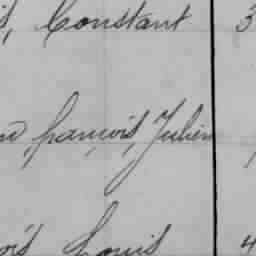 Constant 3
françois, Julien
Louis 4